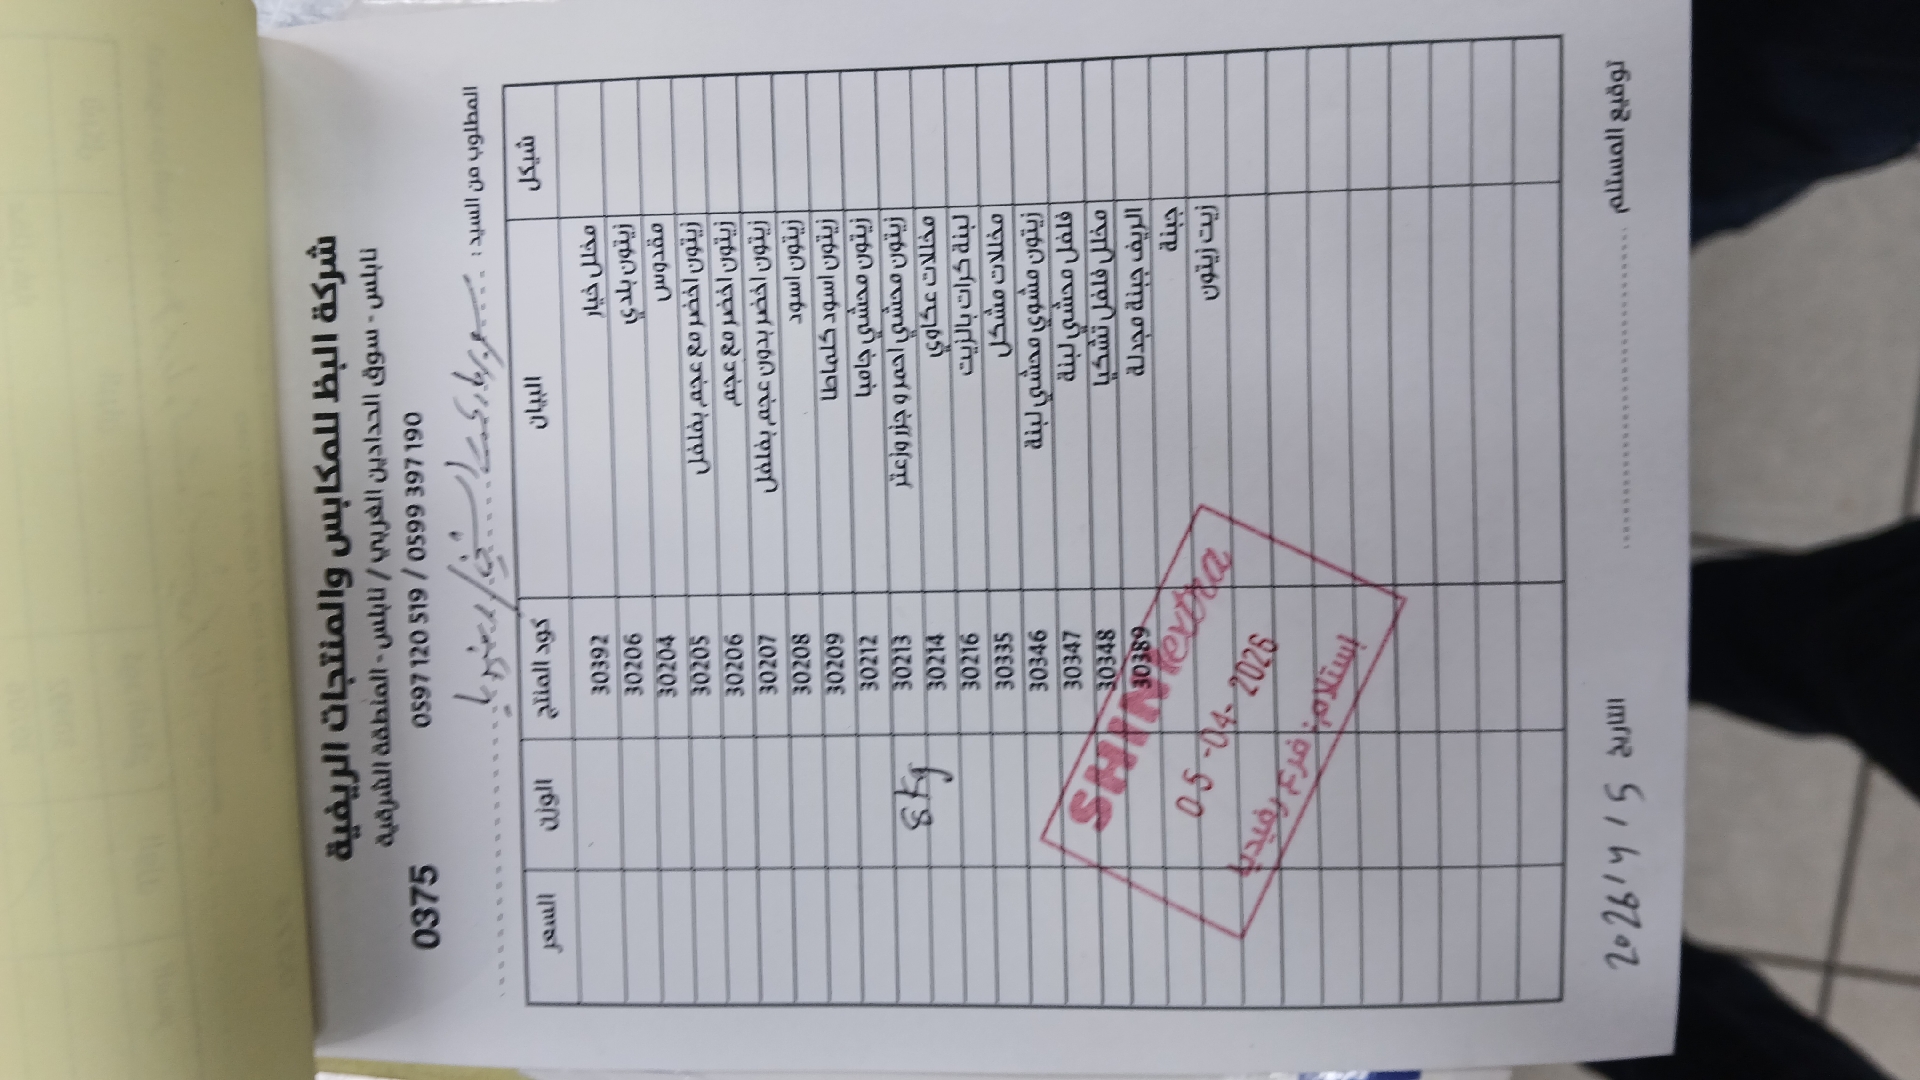 شركة البظ للمكابس والمنتجات الريفية
نابلس - سوق الحدادين الغربي / نابلس - المنطقة الشرقية
0597 120 519 / 0599 397 190
0375
المطلوب من السيد :
شيكل البيان كود المنتج الوزن السعر
مخلل خيار 30392
زيتون بلدي 30206
مقدوس 30204
زيتون اخضر مع عجم بفلفل 30205
زيتون اخضر مع عجم 30206
زيتون اخضر بدون عجم بفلفل 30207
زيتون اسود 30208
زيتون اسود كلماطا 30209
زيتون محشي جامبا 30212
زيتون محشي احمر و جزر وزعتر 30213 8kg
مخللات عكاوي 30214
لبنة كرات بالزيت 30216
مخللات مشكل 30335
زيتون مشوي محشي لبنة 30346
فلفل محشي لبنة 30347
مخلل فلفل تشكيا 30348
الريف جبنة مجدلة 30389
جبنة
زيت زيتون
SHINIextra
05-04-2026
استلام: فرع رفيديا
توقيع المستلم
التاريخ 2026/4/5